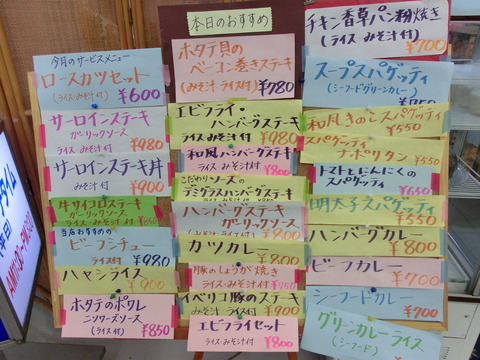 今月のサービスメニュー
ロースカツセット
(ライス・みそ汁付)
¥600
サーロインステーキ
ガーリックソース
ライス・みそ汁付
¥980
サーロインステーキ丼
みそ汁付
¥900
牛サイコロステーキ
ガーリックソース
ライス・みそ汁付
当店おすすめの
ビーフシチュー
ライス付
¥980
ハヤシライス
¥900
ホタテのポワレ
(ライス付)
¥850
本日のおすすめ
ホタテ貝の
ベーコン巻きステーキ
(みそ汁ライス付)
¥980
エビフライ・
ハンバーグステーキ
ライス・みそ汁付
¥980
和風ハンバーグステーキ
ライス・みそ汁付
¥800
こだわりソースの
デミグラスハンバーグステーキ
ハンバーグステーキ
ガーリックソース
ライス・みそ汁付
¥800
カツカレー
¥800
豚のしょうが焼き
ライス・みそ汁付
¥750
イベリコ豚のステーキ
ライス・みそ汁付
¥900
エビフライセット
ライス・みそ汁付
¥800
チキン香草パン粉焼き
(ライス みそ汁付)
¥700
スープスパゲッティ
(シーフードグリーンカレー)
和風きのこスパゲッティ
¥550
スパゲッティ
ナポリタン
¥550
トマトとにんにくの
スパゲッティ
¥650
明太子スパゲッティ
¥550
ハンバーグカレー
¥800
ビーフカレー
¥700
シーフードカレー
¥700
グリーンカレーライス
(シーフード)